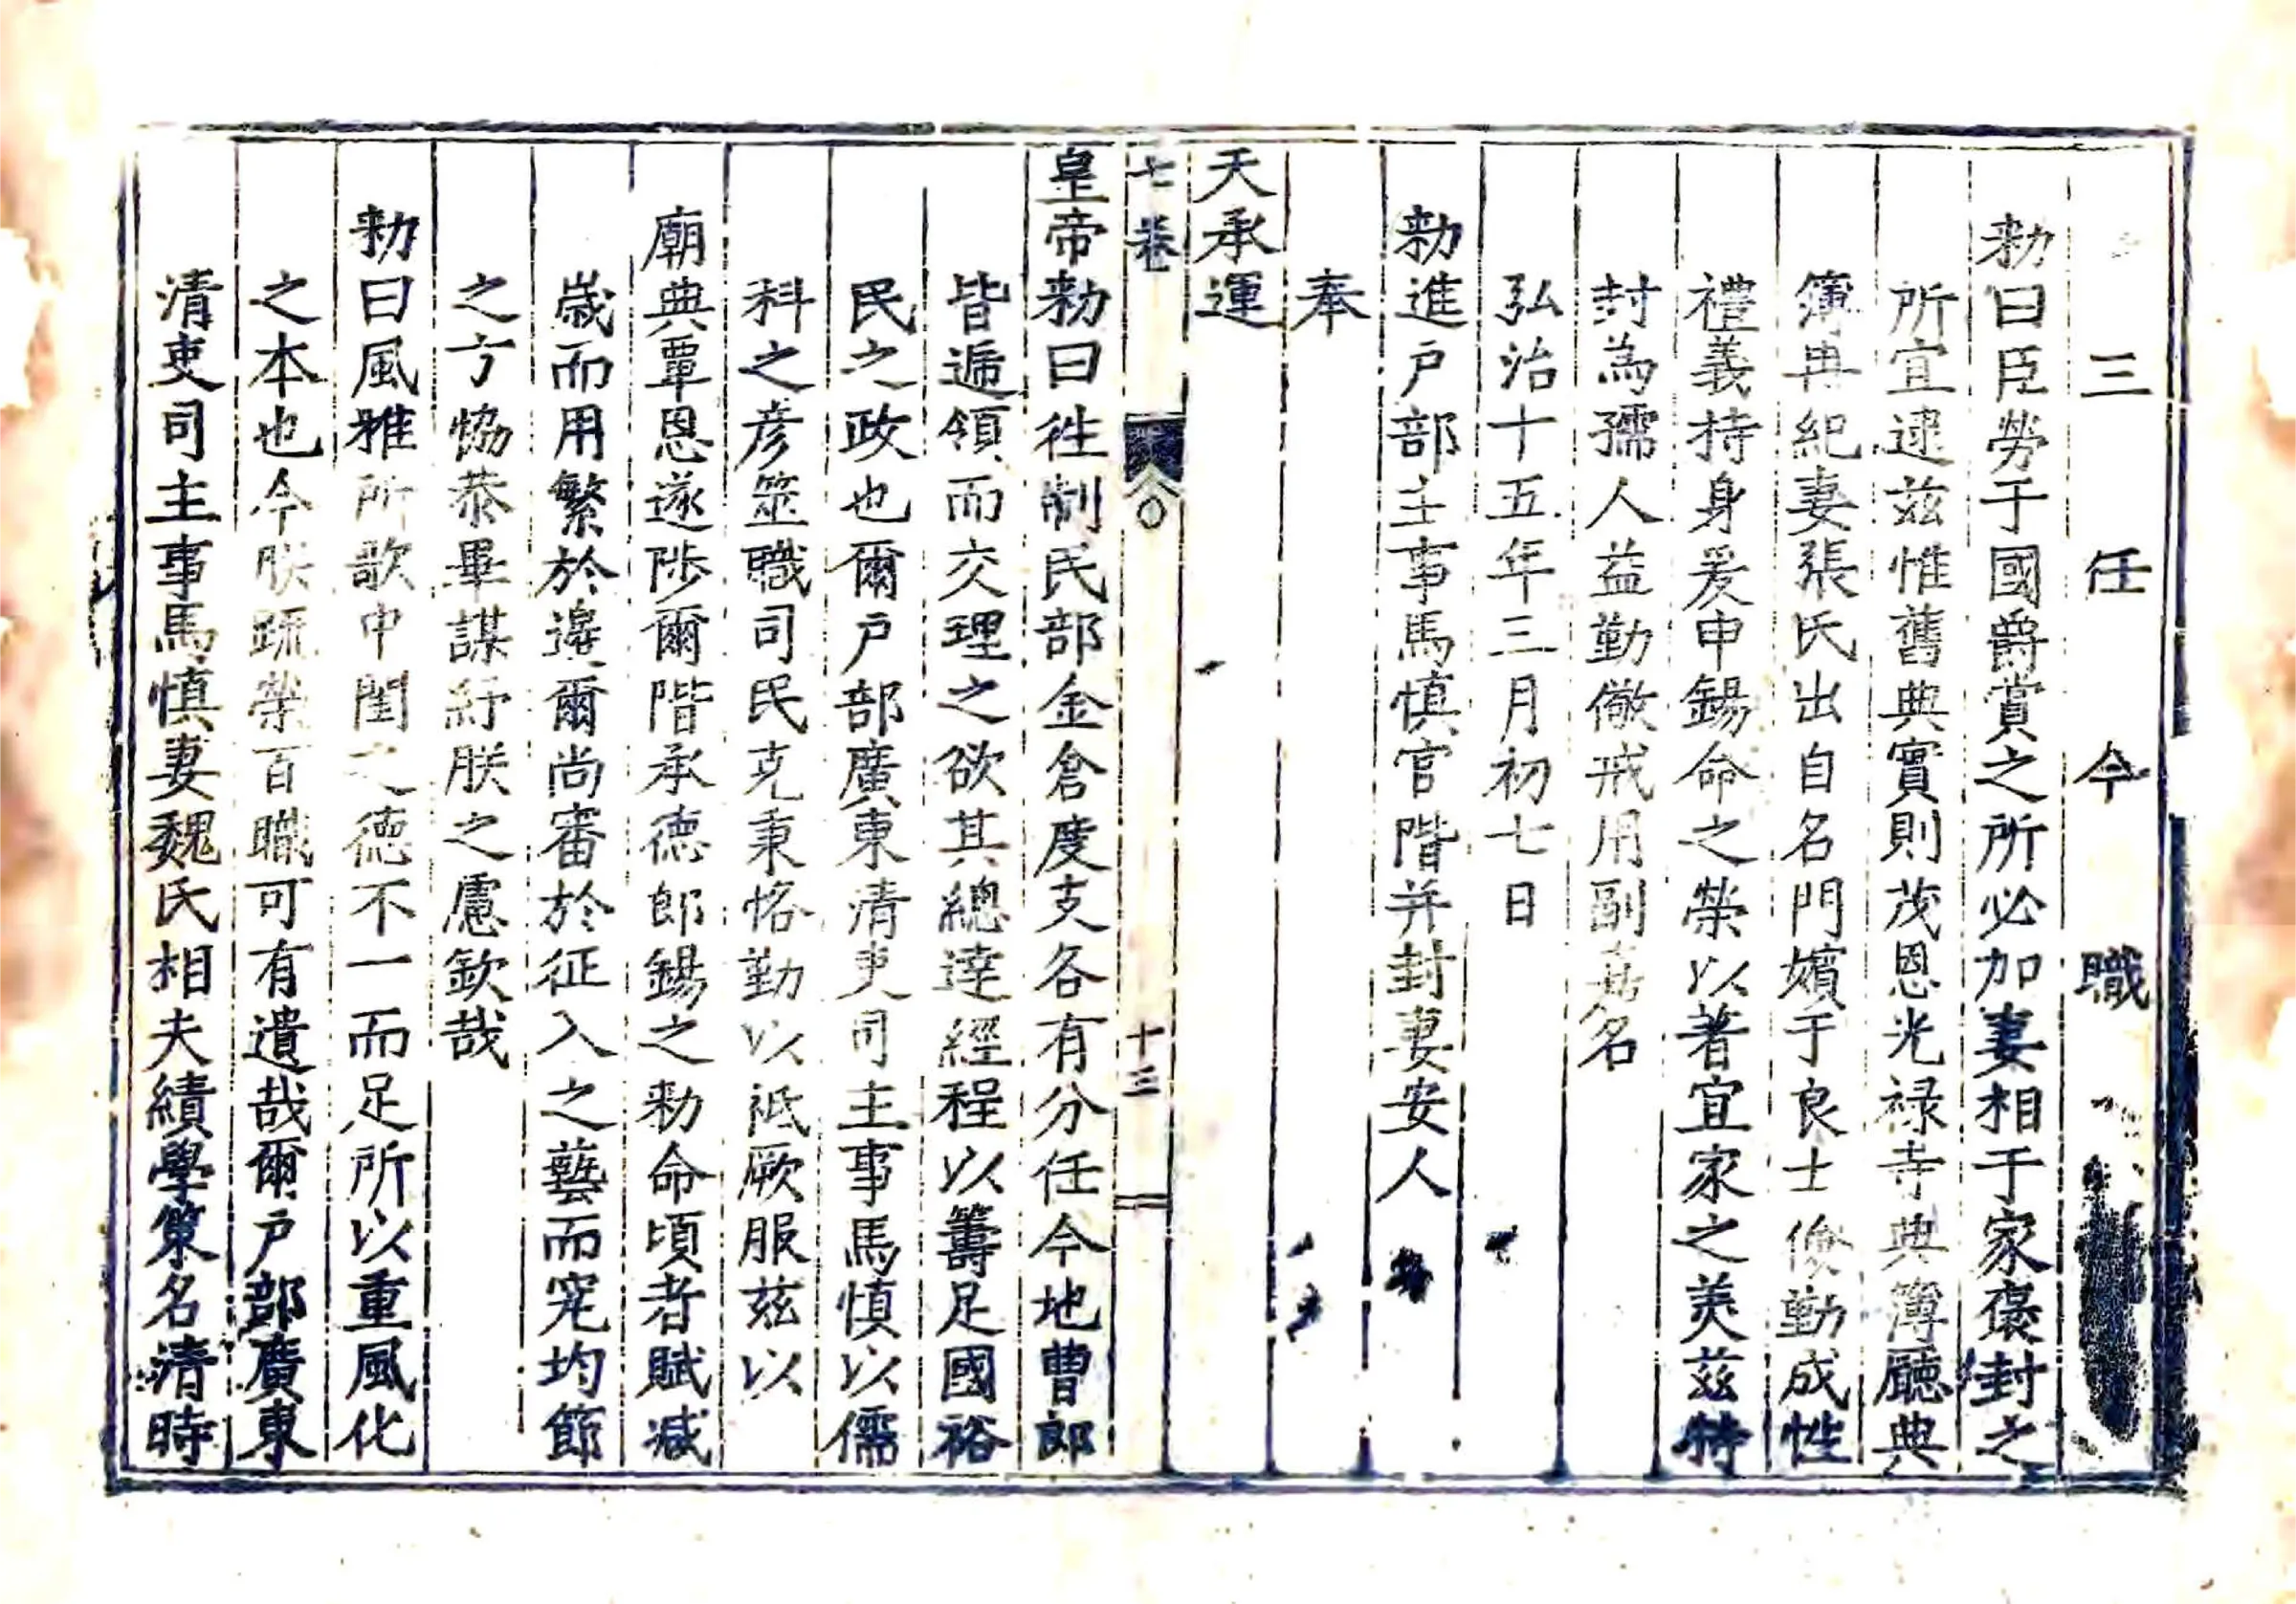 三任今職
勑曰臣勞于國爵賞之所必加妻相于家褒封之
所宜逮兹惟舊典實則茂恩光禄寺典簿廳典
簿冉紀妻張氏出自名門嬪于良士儉勤成性
禮義持身爰申錫命之榮以著宜家之美兹特
封為孺人益勤儆戒用副名
弘治十五年三月初七日
勑進戶部主事馬慎官階并封妻安人
奉
天承運
七卷
十三
皇帝勑曰徃制民部金倉度支各有分任今地曹郎
皆遞領而交理之欲其總逹經程以籌足國裕
民之政也爾戶部廣東清吏司主事馬慎以儒
科之彦筮職司民克秉恪勤以祗厥服兹以
廟典覃恩遂陟爾階承德郎錫之勑命頃者賦减
嵗而用繁於邊爾尚審於征入之藝而宪均節
之方恊恭畢謀紓朕之慮欽哉
勑曰風雅所歌中閨之德不一而足所以重風化
之本也今朕疏榮百職可有遺哉爾戶部廣東
清吏司主事馬慎妻魏氏相夫績學策名清時